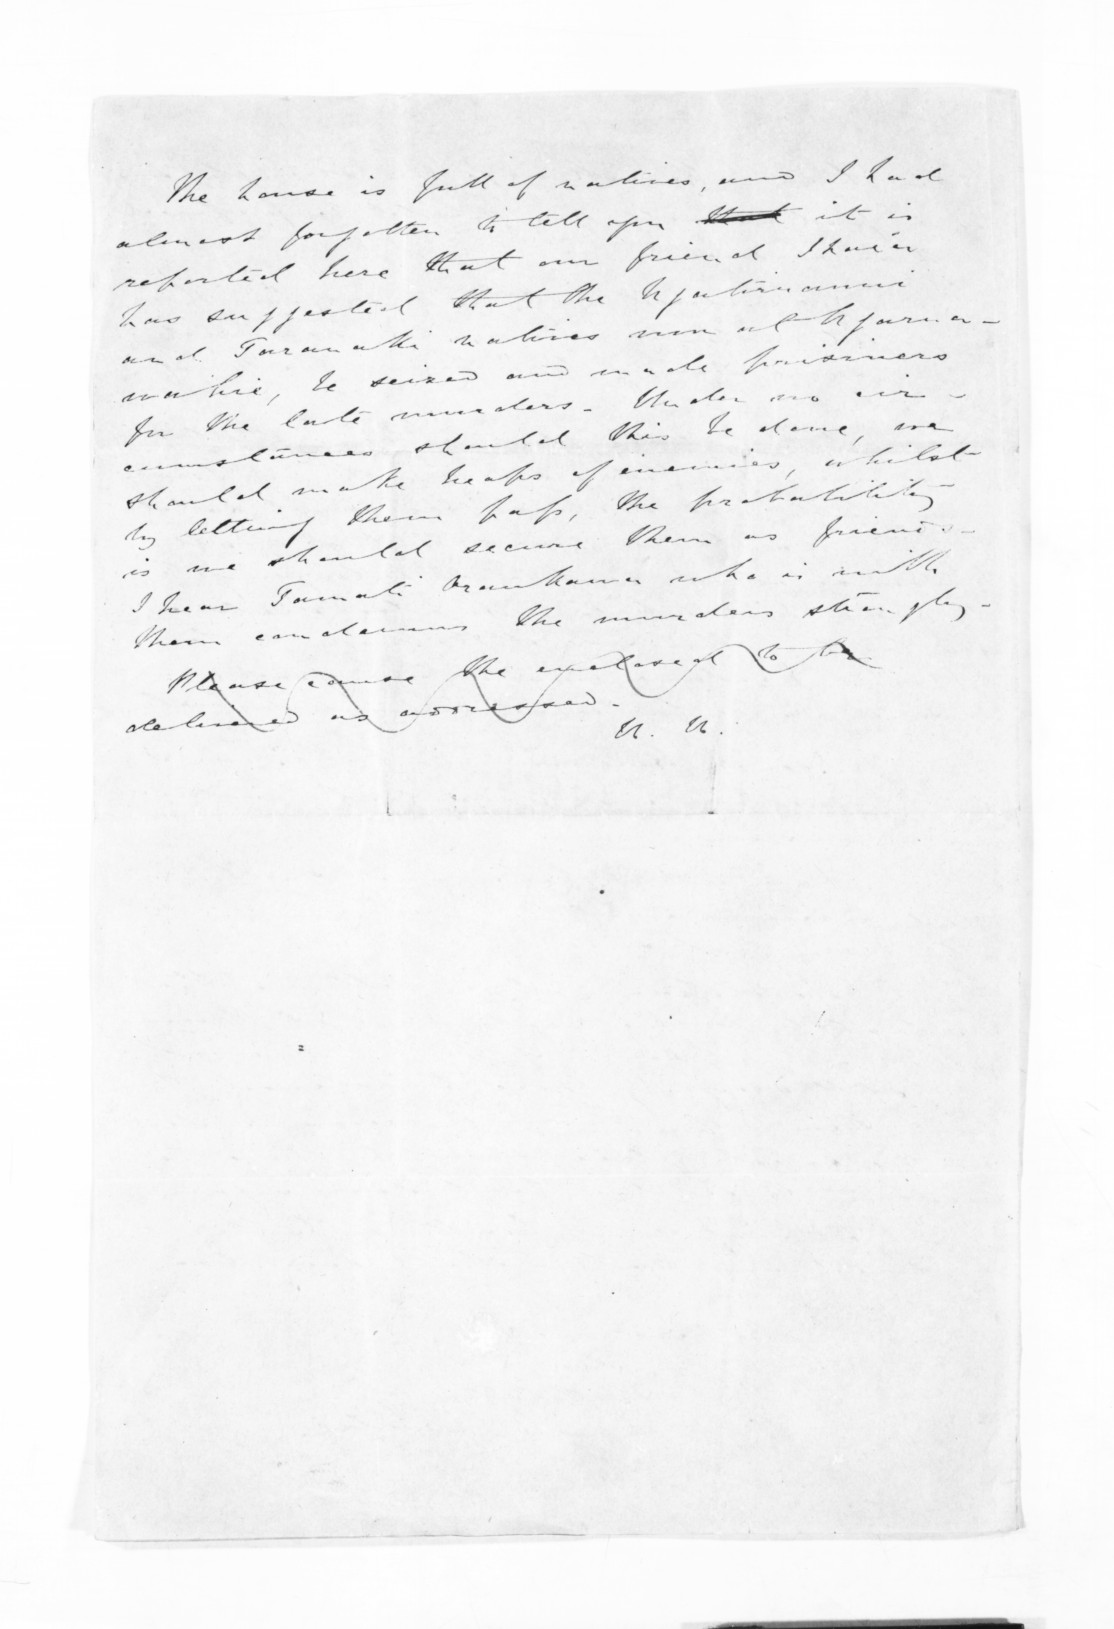 The house is full of natives, and I had
almost forgotten to tell you that it is
reported here that our friend Ihaia
has suggested that the Ngatiruanui
and Taranaki natives now at Ngarua-
wahie, be seized and made prisiners
for the late murders - Under no cir-
cumstances should this be done, we
should make heaps of enemies, whilst
by letting them pass, the probability
is we should secure them as friends -
I hear Tamati who is with
them condemns the murders strongly -
Please cause the enclosed to be
delivered as addressed.